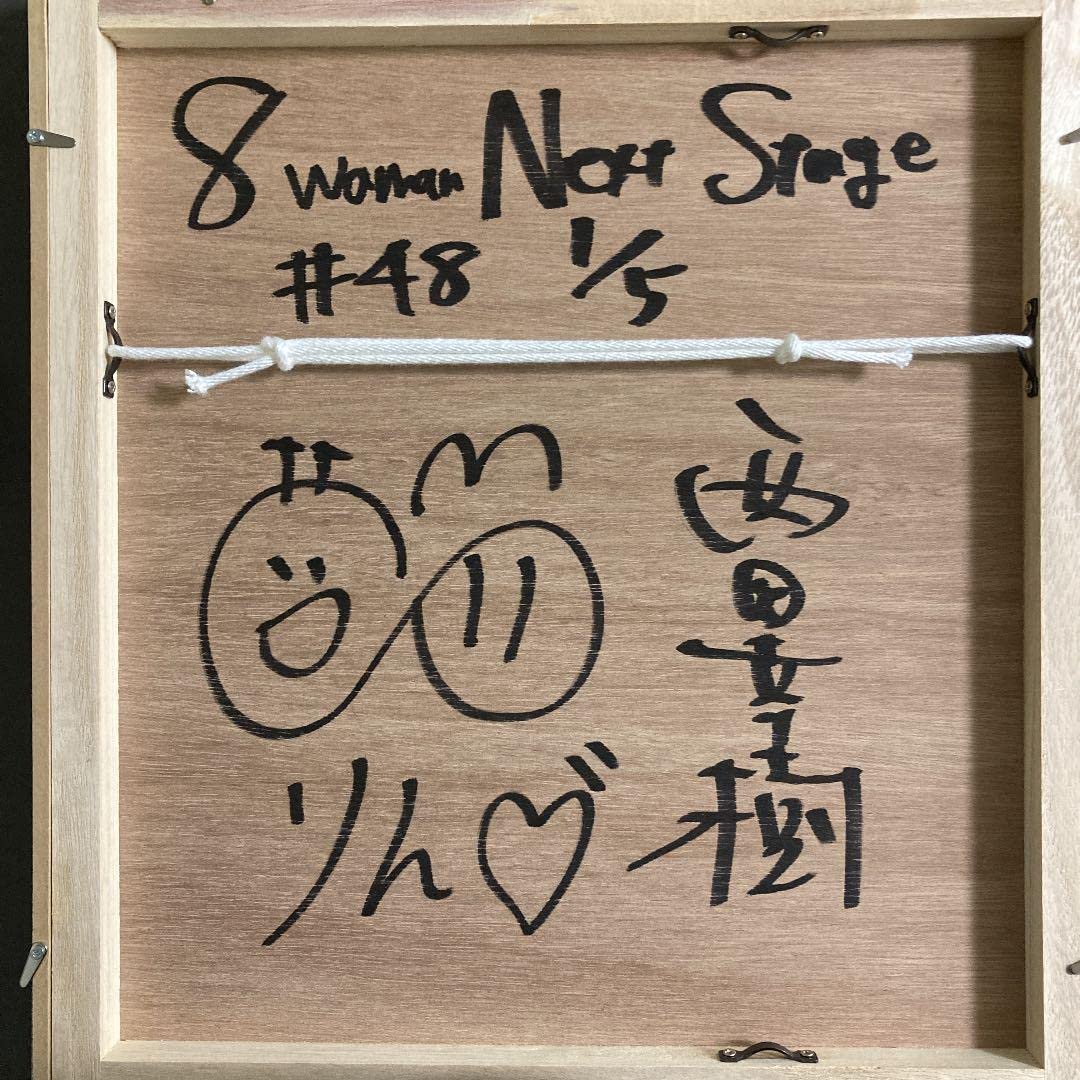 8 woman Next Stage
#48 1/5
りん♡
西田幸樹